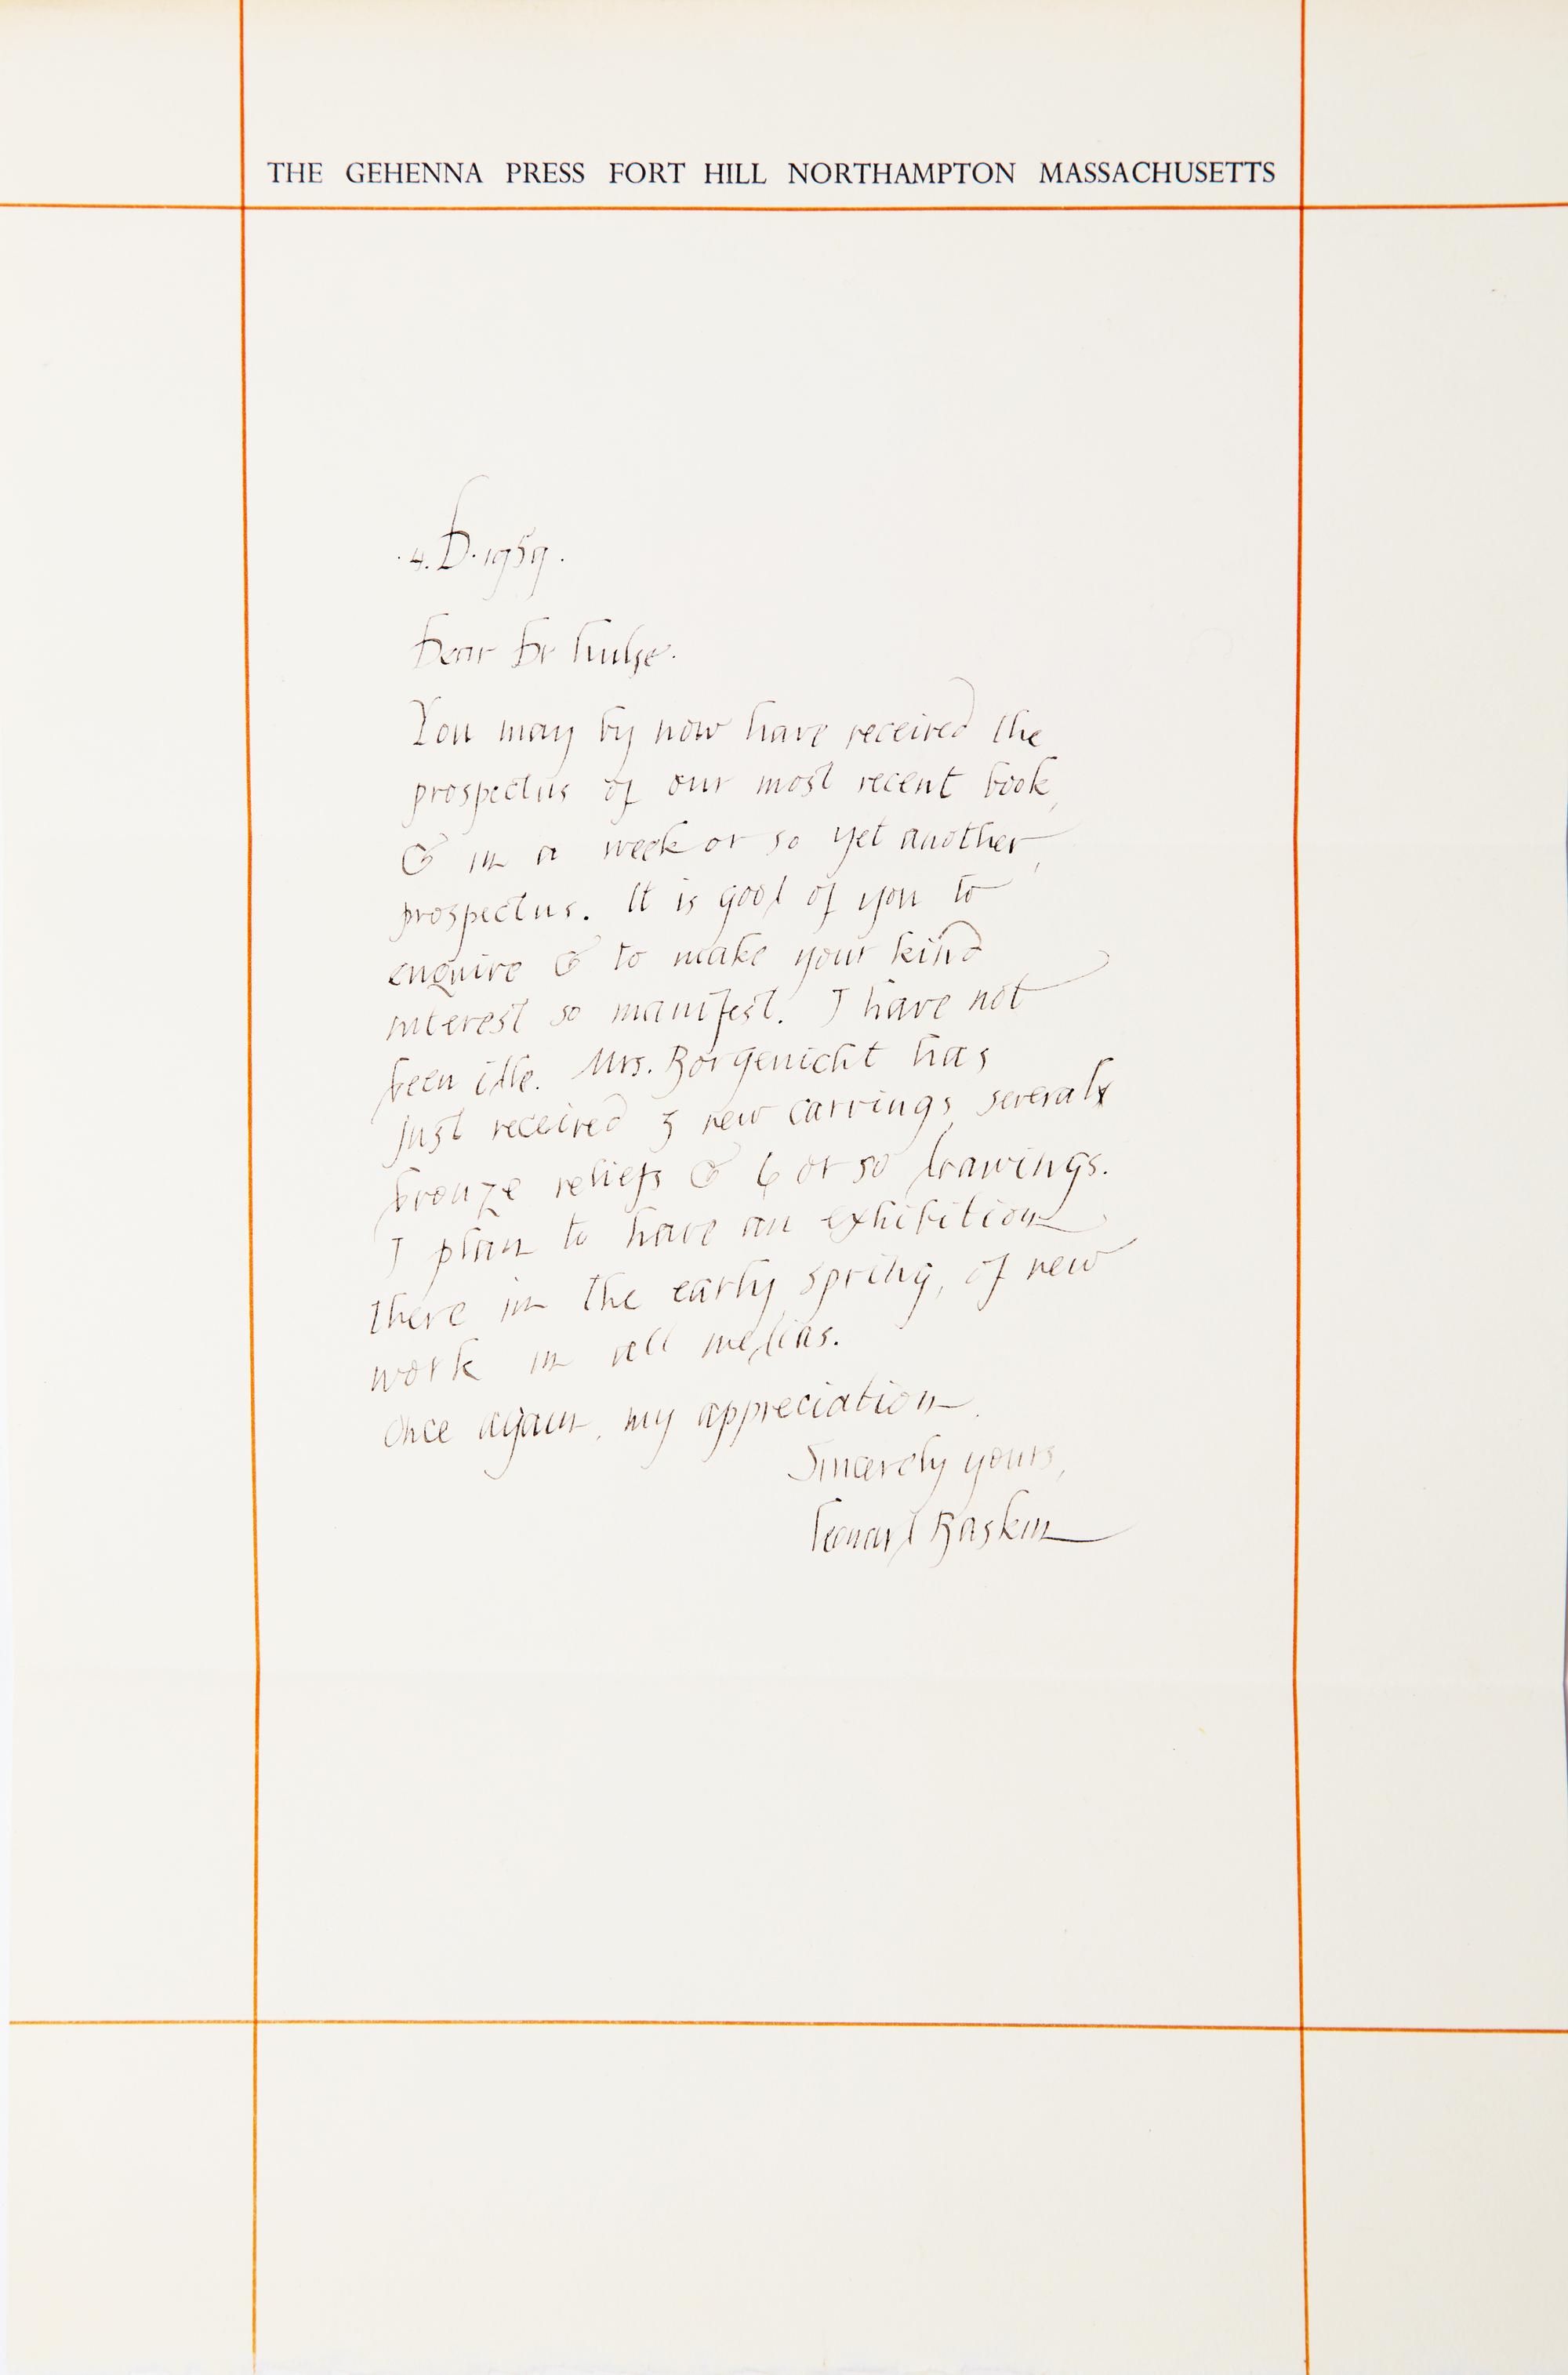 THE GEHENNA PRESS FORT HILL NORTHAMPTON MASSACHUSETTS
.4.D.1959.
Dear Dr Hulse.
You may by now have received the
prospectus of our most recent book,
& in a week or so yet another,
prospectus. It is good of you to
enquire & to make your kind
interest so manifest. I have not
been idle. Mrs. Borgenicht has
just received 3 new carvings, several
bronze reliefs & 6 or so drawings.
I plan to have an exhibition
there in the early spring, of new
work in all medias.
Once again, my appreciation.
Sincerely yours,
Leonard Baskin